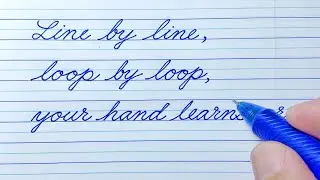 Line by line,
loop by loop,
your hand learns